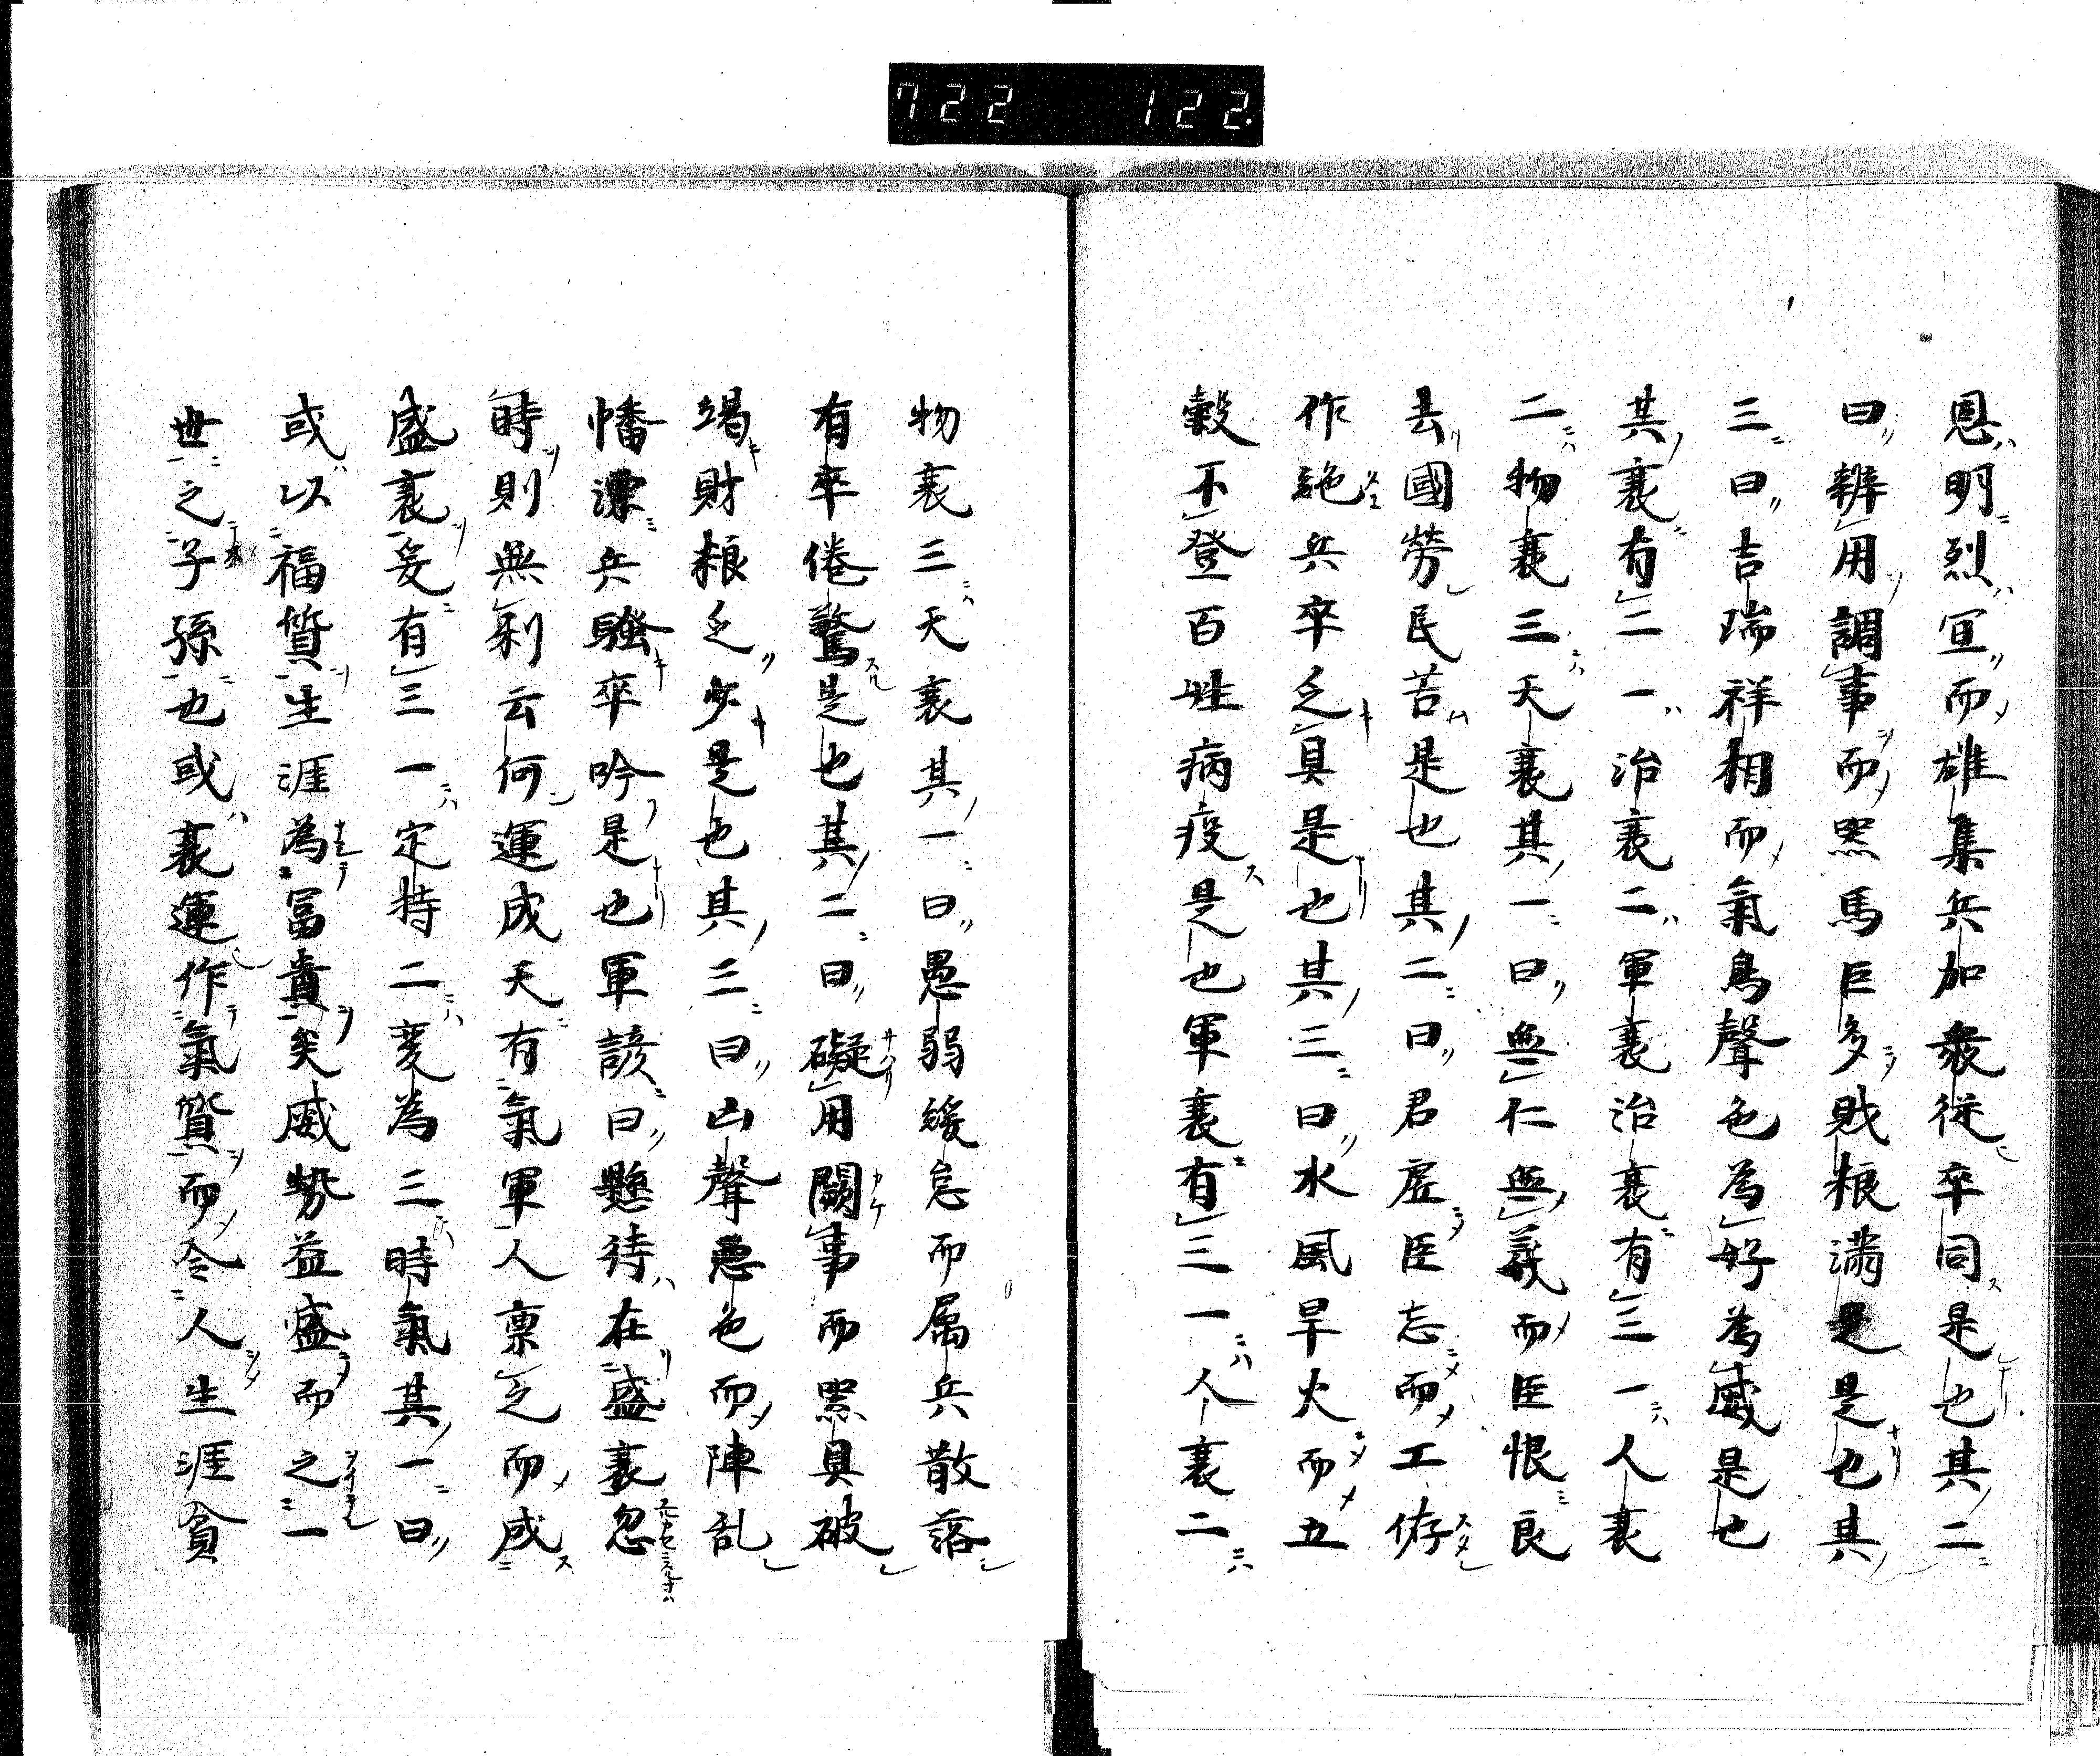 722 122
恩明烈宣而雄集兵加衆従卒同是也其二
曰辨用調事而器馬巨多財粮満是是也其
三曰吉瑞祥相而氣鳥聲色為好為威是也
其衰有二一治衰二軍衰治衰有三一人衰
二物衰三天衰其一曰無仁無義而臣恨良
去國勞民苦是也其二曰君虚臣忘而工侟
作絶兵卒乏具是也其三曰水風旱火而五
穀不登百姓病疫是也軍衰有三一人衰二
物衰三天衰其一曰愚弱緩怠而属兵散落
有卒倦驚是也其二曰礙用闕事而器具破
竭財粮乏少是也其三曰凶聲悪色而陣乱
幡漂兵騒卒吟是也軍諺曰懸待在盛衰忽
時則無利云何運成天有氣軍人禀之而成
盛衰爰有三一定持二変為三時氣其一曰
或以福質生涯為冨貴矣威勢益盛而之一
世之子孫也或衰運作氣質而令人生涯貧